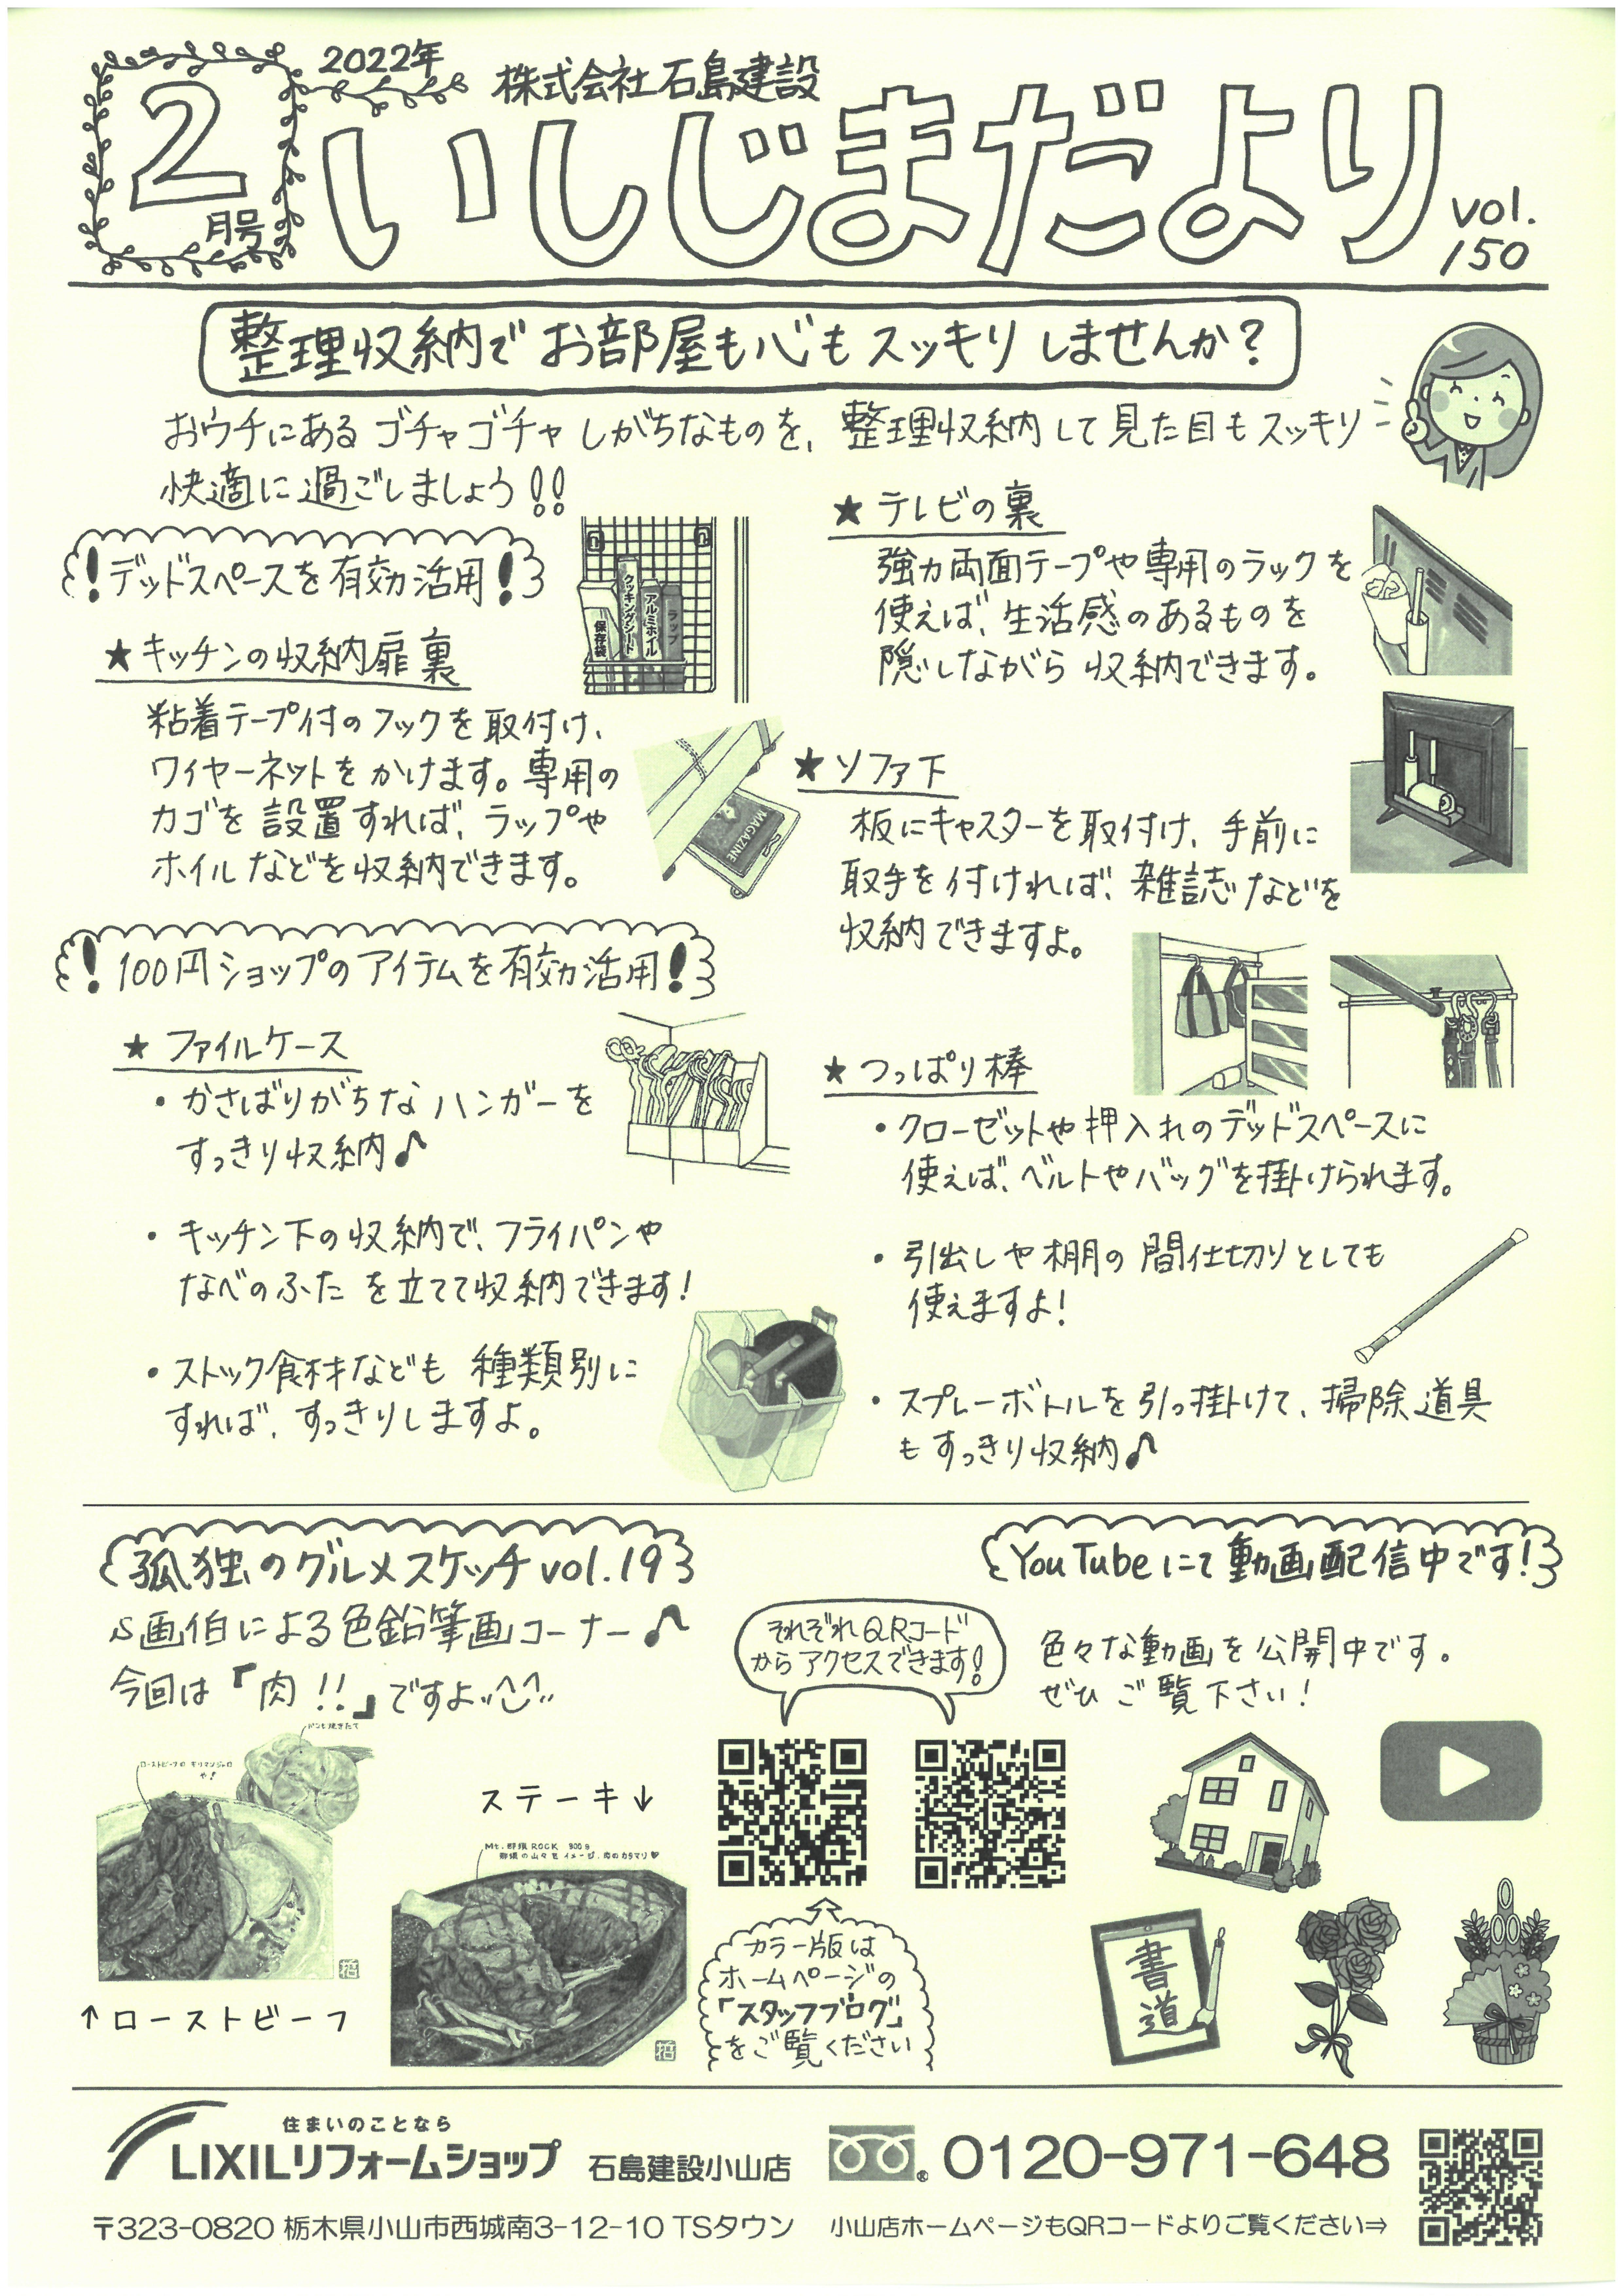 2022年
2
月号
株式会社石島建設
いしじまだより
vol.
150
整理収納でお部屋も心もスッキリしませんか?
おウチにあるゴチャゴチャしがちなものを、整理収納して見た目もスッキリ
快適に過ごしましょう!!
!デッドスペースを有効活用!
★キッチンの収納扉裏
保存袋
クッキングシート
アルミホイル
ラップ
粘着テープ付のフックを取付け、
ワイヤーネットをかけます。専用の
カゴを設置すれば、ラップや
ホイルなどを収納できます。
★テレビの裏
強力両面テープや専用のラックを
使えば、生活感のあるものを
隠しながら収納できます。
★ソファ下
MAGAZINE
板にキャスターを取付け、手前に
取手を付ければ、雑誌などを
収納できますよ。
!100円ショップのアイテムを有効活用!
★ファイルケース
・かさばりがちなハンガーを
すっきり収納♪
・キッチン下の収納で、フライパンや
なべのふたを立てて収納できます!
・ストック食材なども種類別に
すれば、すっきりしますよ。
★つっぱり棒
・クローゼットや押入れのデッドスペースに
使えば、ベルトやバッグを掛けられます。
・引出しや棚の間仕切りとしても
使えますよ!
・スプレーボトルを引っ掛けて、掃除道具
もすっきり収納♪
孤独のグルメスケッチvol.19
S画伯による色鉛筆画コーナー♪
今回は『肉!!』ですよ
パンも焼きたて
ローストビーフの キリマンジャロ
や!
↑ローストビーフ
ステーキ↓
Mt.那須ROCK 900g
那須の山々をイメージ.肉のカタマリ♥
それぞれQRコード
からアクセスできます!
カラー版は
ホームページの
「スタッフブログ」
をご覧ください
YouTubeにて動画配信中です!
色々な動画を公開中です。
ぜひご覧下さい!
書道
住まいのことなら
LIXILリフォームショップ 石島建設小山店
0120-971-648
〒323-0820 栃木県小山市西城南3-12-10 TSタウン
小山店ホームページもQRコードよりご覧ください⇒